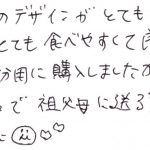 のデザインが とても
とても 食べやすくて
分用に 購入しましたが
で 祖父母に送る